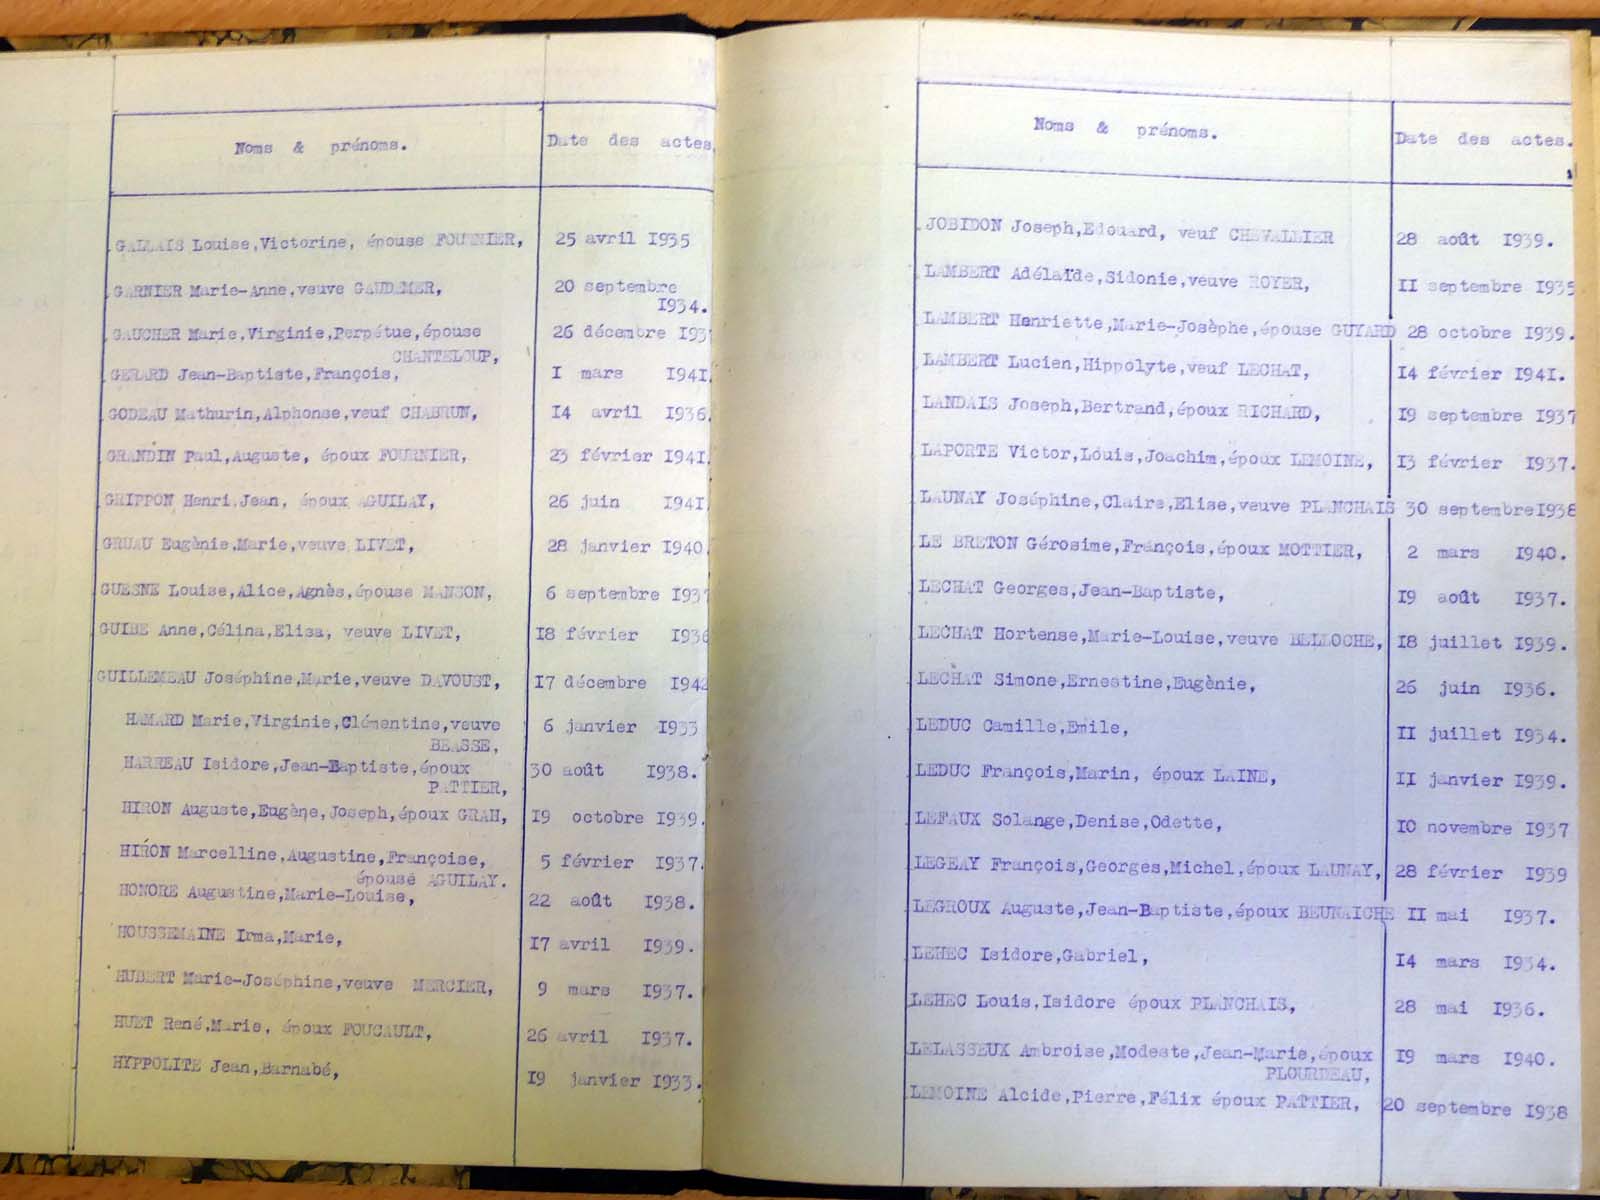 Noms & prénoms. Date des actes.
GALLAIS Louise,Victorine, épouse FOURNIER, 25 avril I935
GARNIER Marie-Anne,veuve GAUDEMER, 20 septembre
I934.
GAUCHER Marie,Virginie,Perpétue,épouse 26 décembre
CHANTELOUP,
GERARD Jean-Baptiste,François, I mars I941.
GODEAU Mathurin,Alphonse,veuf CHABRUN, I4 avril I936.
GRANDIN Paul,Auguste, époux FOURNIER, 23 février I941.
GRIPPON Henri,Jean, époux AGUILAY, 26 juin I941
GRUAU Eugènie,Marie,veuve LIVET, 28 janvier I940.
GUESNE Louise,Alice,Agnès,épouse MANSON, 6 septembre
GUIBE Anne,Célina,Elisa, veuve LIVET, I8 février I936
GUILLEMEAU Joséphine,Marie,veuve DAVOUST, I7 décembre I942
HAMARD Marie,Virginie,Clémentine,veuve 6 janvier I933
BEASSE,
HARREAU Isidore,Jean-Baptiste,époux 30 août I938.
PATTIER,
HIRON Auguste,Eugène,Joseph,époux GRAH, I9 octobre I939.
HIRON Marcelline,Augustine,Françoise, 5 février I937.
épouse AGUILAY.
HONORE Augustine,Marie-Louise, 22 août I938.
HOUSSEMAINE Irma,Marie, I7 avril I939.
HUBERT Marie-Joséphine,veuve MERCIER, 9 mars I937.
HUET René,Marie, époux FOUCAULT, 26 avril I937.
HYPPOLITE Jean,Barnabé, I9 janvier I933.
Noms & prénoms. Date des actes.
JOBIDON Joseph,Edouard, veuf CHEVALLIER 28 août I939.
LAMBERT Adélaïde,Sidonie,veuve ROYER, II septembre I935
LAMBERT Henriette,Marie-Josèphe,épouse GUYARD 28 octobre I939.
LAMBERT Lucien,Hippolyte,veuf LECHAT, I4 février I941.
LANDAIS Joseph,Bertrand,époux RICHARD, I9 septembre I937
LAPORTE Victor,Louis,Joachim,époux LEMOINE, I3 février I937.
LAUNAY Joséphine,Claire,Elise,veuve PLANCHAIS 30 septembreI938
LE BRETON Gérosime,François,époux MOTTIER, 2 mars I940.
LECHAT Georges,Jean-Baptiste, I9 août I937.
LECHAT Hortense,Marie-Louise,veuve BELLOCHE, I8 juillet I939.
LECHAT Simone,Ernestine,Eugènie, 26 juin I936.
LEDUC Camille,Emile, II juillet I934.
LEDUC François,Marin, époux LAINE, II janvier I939.
LEFAUX Solange,Denise,Odette, I0 novembre I937
LEGEAY François,Georges,Michel,époux LAUNAY, 28 février I939
LEGROUX Auguste,Jean-Baptiste,époux BEUNAICHE II mai I937.
LEHEC Isidore,Gabriel, I4 mars I934.
LEHEC Louis,Isidore époux PLANCHAIS, 28 mai I936.
LELASSEUX Ambroise,Modeste,Jean-Marie,époux I9 mars I940.
PLOURDEAU,
LEMOINE Alcide,Pierre,Félix époux PATTIER, 20 septembre I938